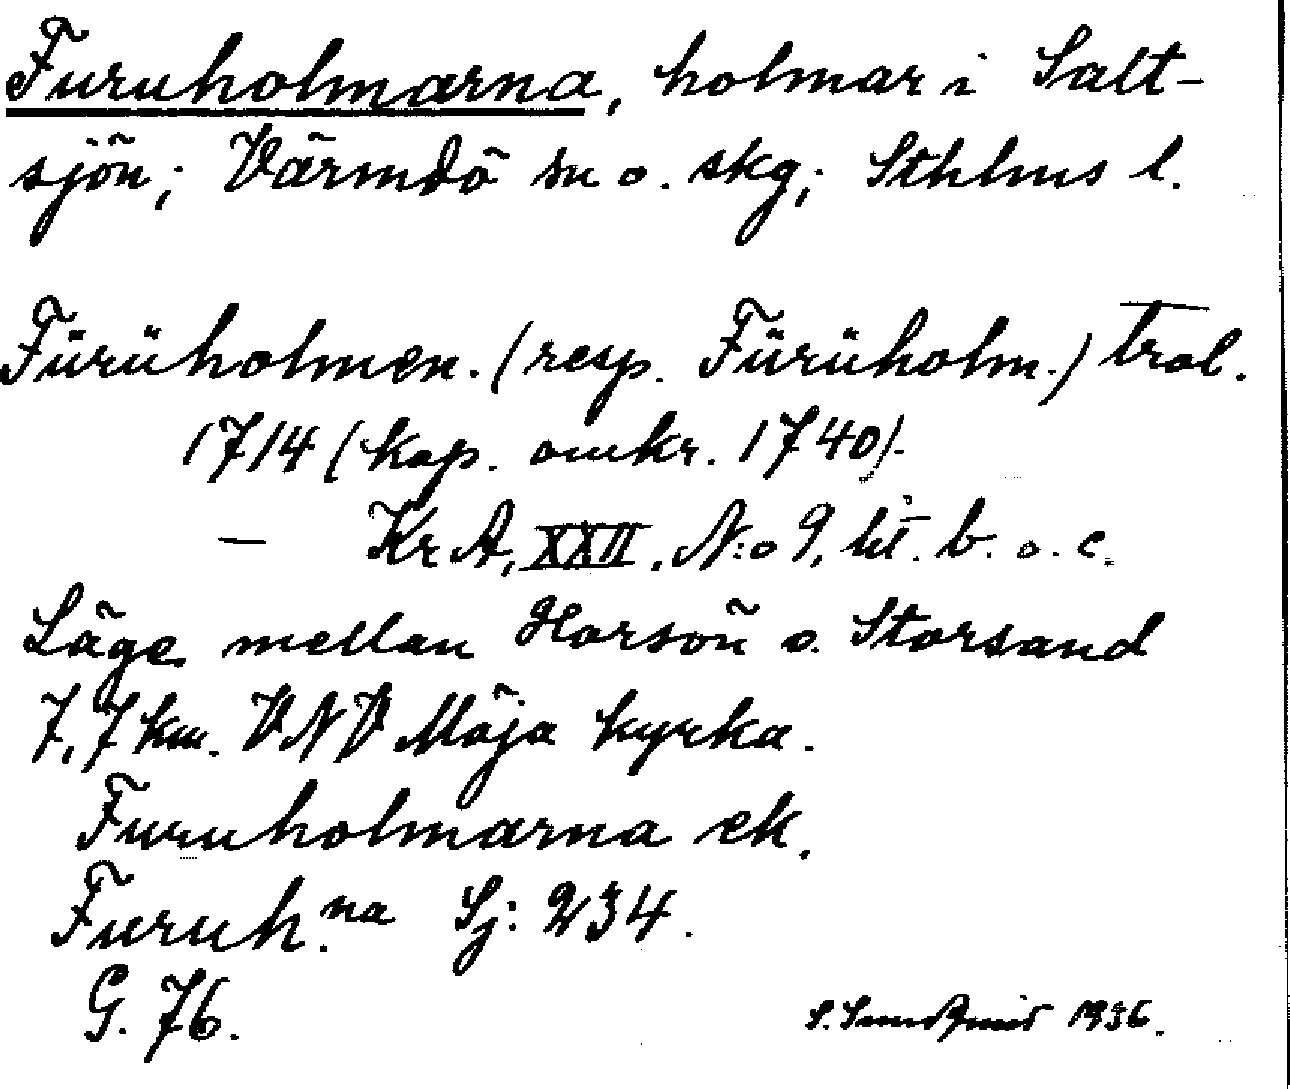 Furuholmarna, holmar i Salt-
sjön; Värmdö sn o. skg; Sthlms l.
Füruholmen. (resp. Füruholm.) trol.
1714 (kop. omkr. 1740).
— KrA, XXII. N:o 9, litt. b. o. c.
Läge mellan Horsön o. Storsand
7,7 km. VNV Möja kyrka.
Furuholmarna ek.
Furuh.na Sj: 234.
G. 76.
1936.